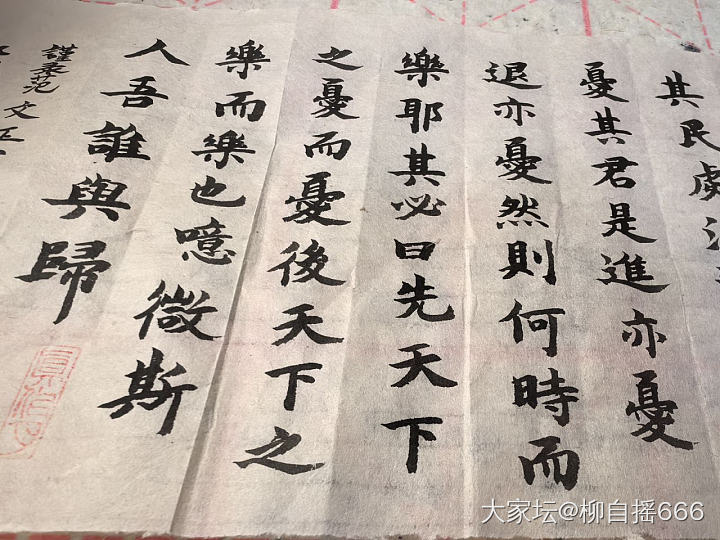 其民處
憂其君是進亦憂
退亦憂然則何時而
樂耶其必曰先天下
之憂而憂後天下之
樂而樂也噫微斯
人吾誰與歸
謹范文正
大家坛@柳自摇666